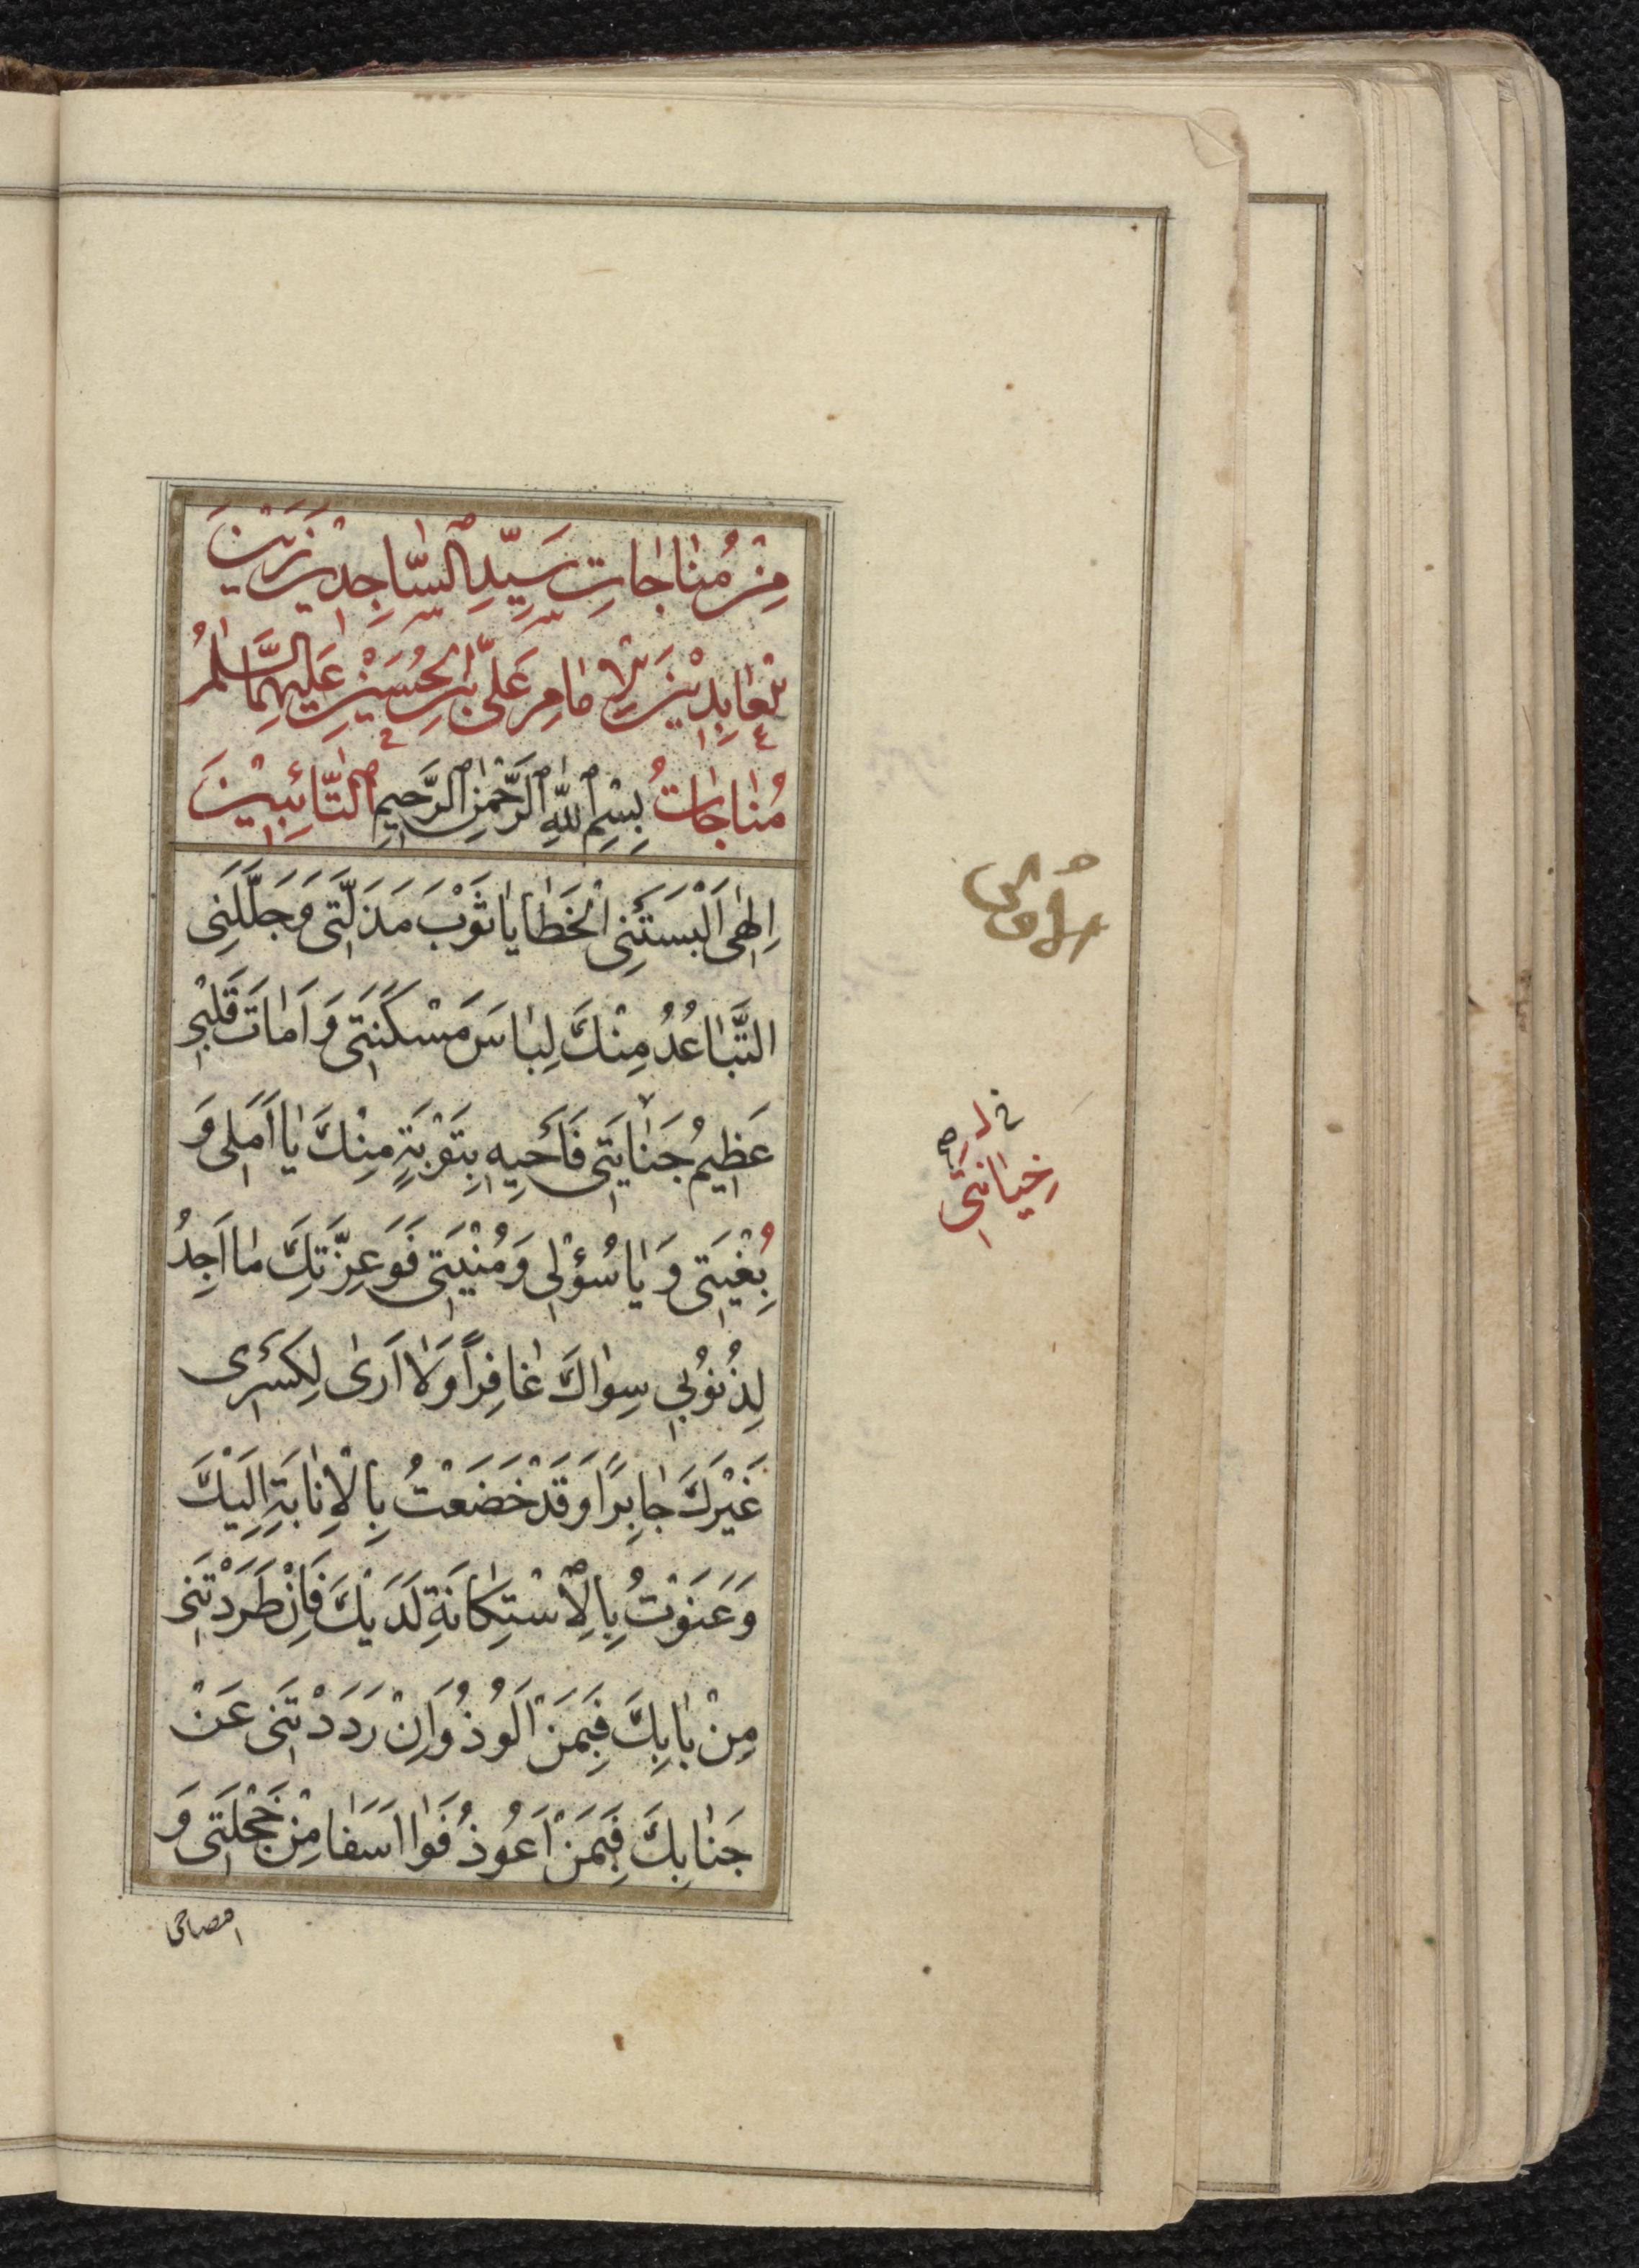 مِنْ مُنٰاجٰاتِ سَيِّدِ السّٰاجِدِيْنَ زَيْنَ
الْعٰابِدِيْنَ الْاِمٰامِ عَلِىِّ بْنِ الْحُسَيْنِ عَلَيْهِمَا السَّلٰمُ
مُنٰاجٰاتُ بِسْمِ ٱللّٰهِ ٱلرَّحْمٰنِ ٱلرَّحِيمِ التّٰائِبيْنَ
اِلٰهِى اَلْبَسَتْنِى الْخَطٰايٰا ثَوْبَ مَذَلَّتِى وَ جَلَّلَنِى
التَّبٰاعُدُ مِنْكَ لِبٰاسَ مَسْكَنَتِى وَ اَمٰاتَ قَلْبِى
عَظِيمُ جَنٰايَتِى فَاَحْيِهِ بِتَوْبَةٍ مِنْكَ يٰا اَمَلِى وَ
بُغْيَتِى وَ يٰا سُؤْلِى وَ مُنْيَتِى فَوَعِزَّتِكَ مٰا اَجِدُ
لِذُنُوبِى سِوٰاكَ غٰافِراً وَلٰا اَرىٰ لِكَسْرِى
غَيْرَكَ جٰابِرًا وَ قَدْ خَضَعْتُ بِالْاِنٰابَةِ اِلَيْكَ
وَعَنَوْتُ بِالِاسْتِكٰانَةِ لَدَيْكَ فَاِنْ طَرَدْتَنِى
مِنْ بٰابِكَ فَبِمَنْ اَلُوذُ وَاِنْ رَدَدْتَنِى عَنْ
جَنٰابِكَ فَبِمَنْ اَعُوذُ فَوٰا اَسَفٰا مِنْ خَجْلَتِى وَ
افتضاحى
خِيٰانَتِى